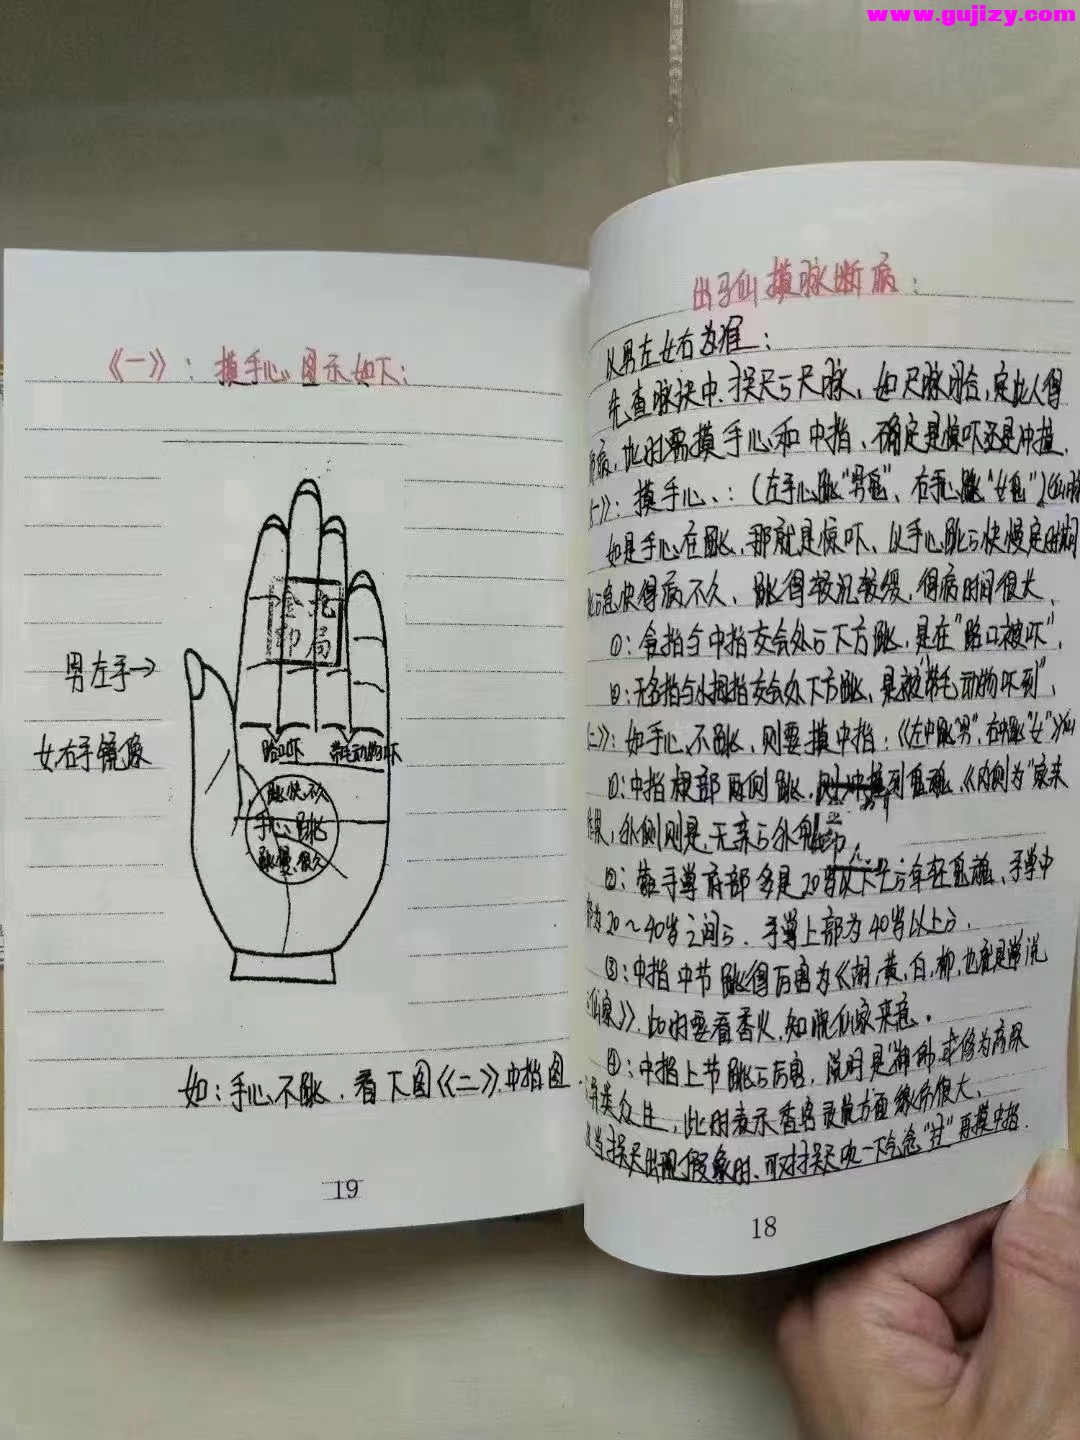 www.gujizy.com
《一》：摸手心图示如下：
男左手→
女右手镜像
路口吓 带毛动物吓
跳快，不久
手心跳
跳慢，很久
如：手心不跳，看下图《二》中指图
19
出马仙摸脉断病：
以男左女右为准：
先查脉诀中，拐尺与尺脉，如尺脉闭合，定此人得
病，此时需摸手心和中指，确定是惊吓还是冲撞，
摸手心：（左手心跳“男鬼”，右手心跳“女鬼”）
如是手心在跳，那就是惊吓，以手心跳与快慢定时间
快得病不久，跳得较沉较缓，得病时间很久，
①：食指与中指交会处与下方跳，是在“路口被吓”，
②：无名指与小拇指交会处下方跳，是被“带毛动物吓到”，
如手心不跳，则要摸中指：《左中跳“男”，右中跳“女”》
①：中指根部两侧跳，到鬼魂《内侧为“家亲
外侧则是，无亲与外鬼
②：手掌底部多是20岁以下与年轻鬼魂，手掌中
部为20～40岁之间与，手掌上部为40岁以上与，
③：中指中节跳得厉害为《胡，黄，白，柳，也就是常说
仙家》，此时要看香火，知晓仙家来意。
④：中指上节跳与厉害，说明是
异类众生，此时表示香客灵界方面缘份很大，
当拐尺出现假象时，可对拐尺吹一下气念“过”再摸中指．
18